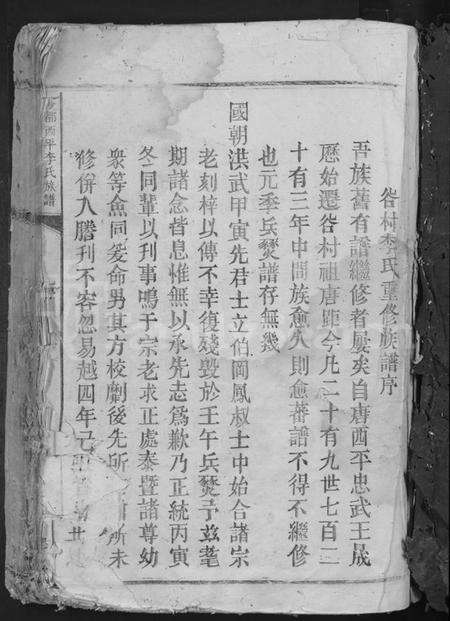 谷村李氏重修族譜序
吾族舊有譜繼修者屢矣自唐西平忠武王晟
歷始遷谷村祖唐距今凡二十有九世七百二
十有三年中間族愈大則愈蕃譜不得不繼修
也元季兵燹譜存無幾
國朝洪武甲寅先君士立伯岡鳳叔士中始合諸宗
老刻梓以傳不幸復殘毀於壬午兵燹予玆耄
期諸念皆息惟無以承先志為歉乃正統丙寅
冬同輩以刋事鳴于宗老求正處泰暨諸尊幼
衆等僉同爰命男其方校劘後先所 所未
修併入謄刊不容忽易越四年己 廿
都西平李氏族譜